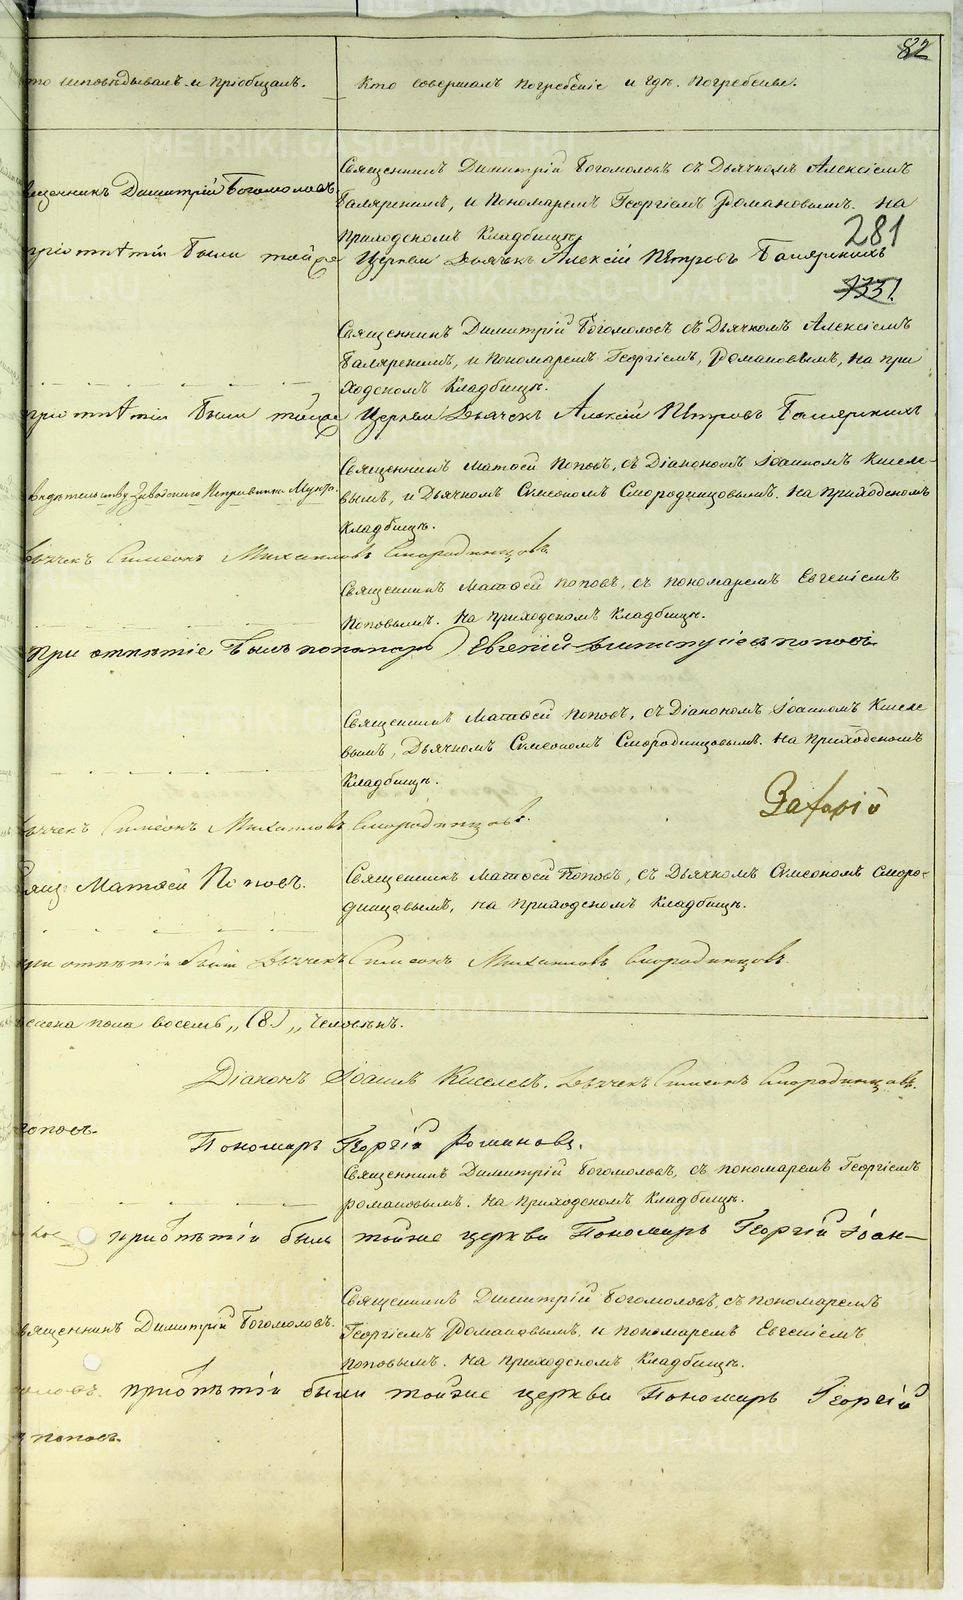 82
то исповѣдывалъ и пріобщалъ.
Кто совершалъ погребеніе и гдѣ погребены.
Священникъ Димитрій Богомоловъ съ Дьячкомъ Алексіемъ
вященникъ Димитрій Богомоловъ.
Пономаремъ Георгіемъ Романовымъ. На
приходскомъ Кладбищѣ
281
были тойже Церкви Дьячекъ Алексій Петровъ
1331.
Священникъ Димитрій Богомоловъ съ Дьячкомъ Алексіемъ
и Пономаремъ Георгіемъ, Романовымъ, на при
ходскомъ Кладбищѣ.
были тойже Церкви Дьячекъ Алексій Петровъ
Священникъ Матѳей Поповъ, съ Діакономъ Іоанномъ Кисле-
вымъ, и Дьячкомъ Сѵмеономъ Смородинцовымъ. На приходскомъ
Кладбищѣ.
Симеонъ Михаиловъ Смородинцовъ
Священникъ Матѳей Поповъ, съ пономаремъ Евгеніемъ
Поповымъ. На приходскомъ Кладбищѣ.
При отпѣтіе былъ пономарь Евгеній поповъ
Священникъ Матѳей Поповъ, съ Діакономъ Іоанномъ Кисле
вымъ, Дьячкомъ Сѵмеономъ Смородинцовымъ. На приходскомъ
Кладбищѣ.
Симеонъ Михаиловъ Смородинцовъ.
Свящ. Матѳей Поповъ.
Священникъ Матѳей Поповъ, съ Дьячкомъ Сѵмеономъ Сморо-
динцовымъ, на приходскомъ Кладбищѣ.
при отпѣтіи былъ Дьячекъ Симеонъ Михаиловъ Смородинцовъ.
пола восемь „(8.)„ человѣкъ.
Діаконъ Іоаннъ Киселевъ. Дьячекъ Симеонъ Смородинцовъ.
поповъ.
Пономарь Георгій Романовъ.
Священникъ Димитрій Богомоловъ, съ пономаремъ Георгіемъ
романовымъ. На приходскомъ Кладбищѣ.
былъ тойже церкви Пономарь Георгій Іоан-
Священникъ Димитрій Богомоловъ, съ пономаремъ
вященникъ Димитрій Богомоловъ.
Георгіемъ Романовымъ, и пономаремъ Евгеніемъ
поповымъ. На приходскомъ Кладбищѣ.
были тойже церкви Пономарь Георгій
поповъ.
METRIKI.GASO-URAL.RU